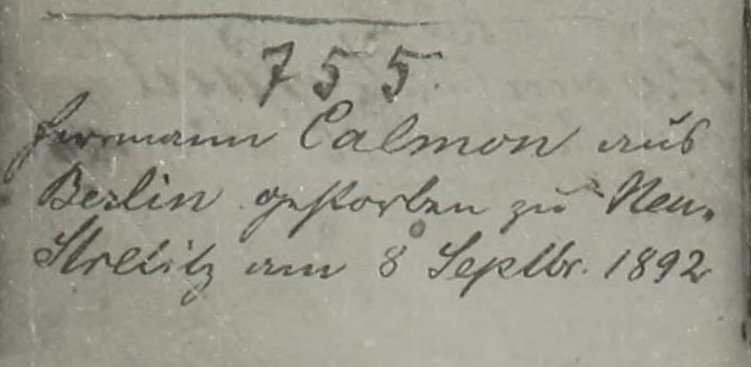 755.
Herrmann Calmon aus
Berlin gestorben zu Neu-
Strelitz am 8 Septbr. 1892